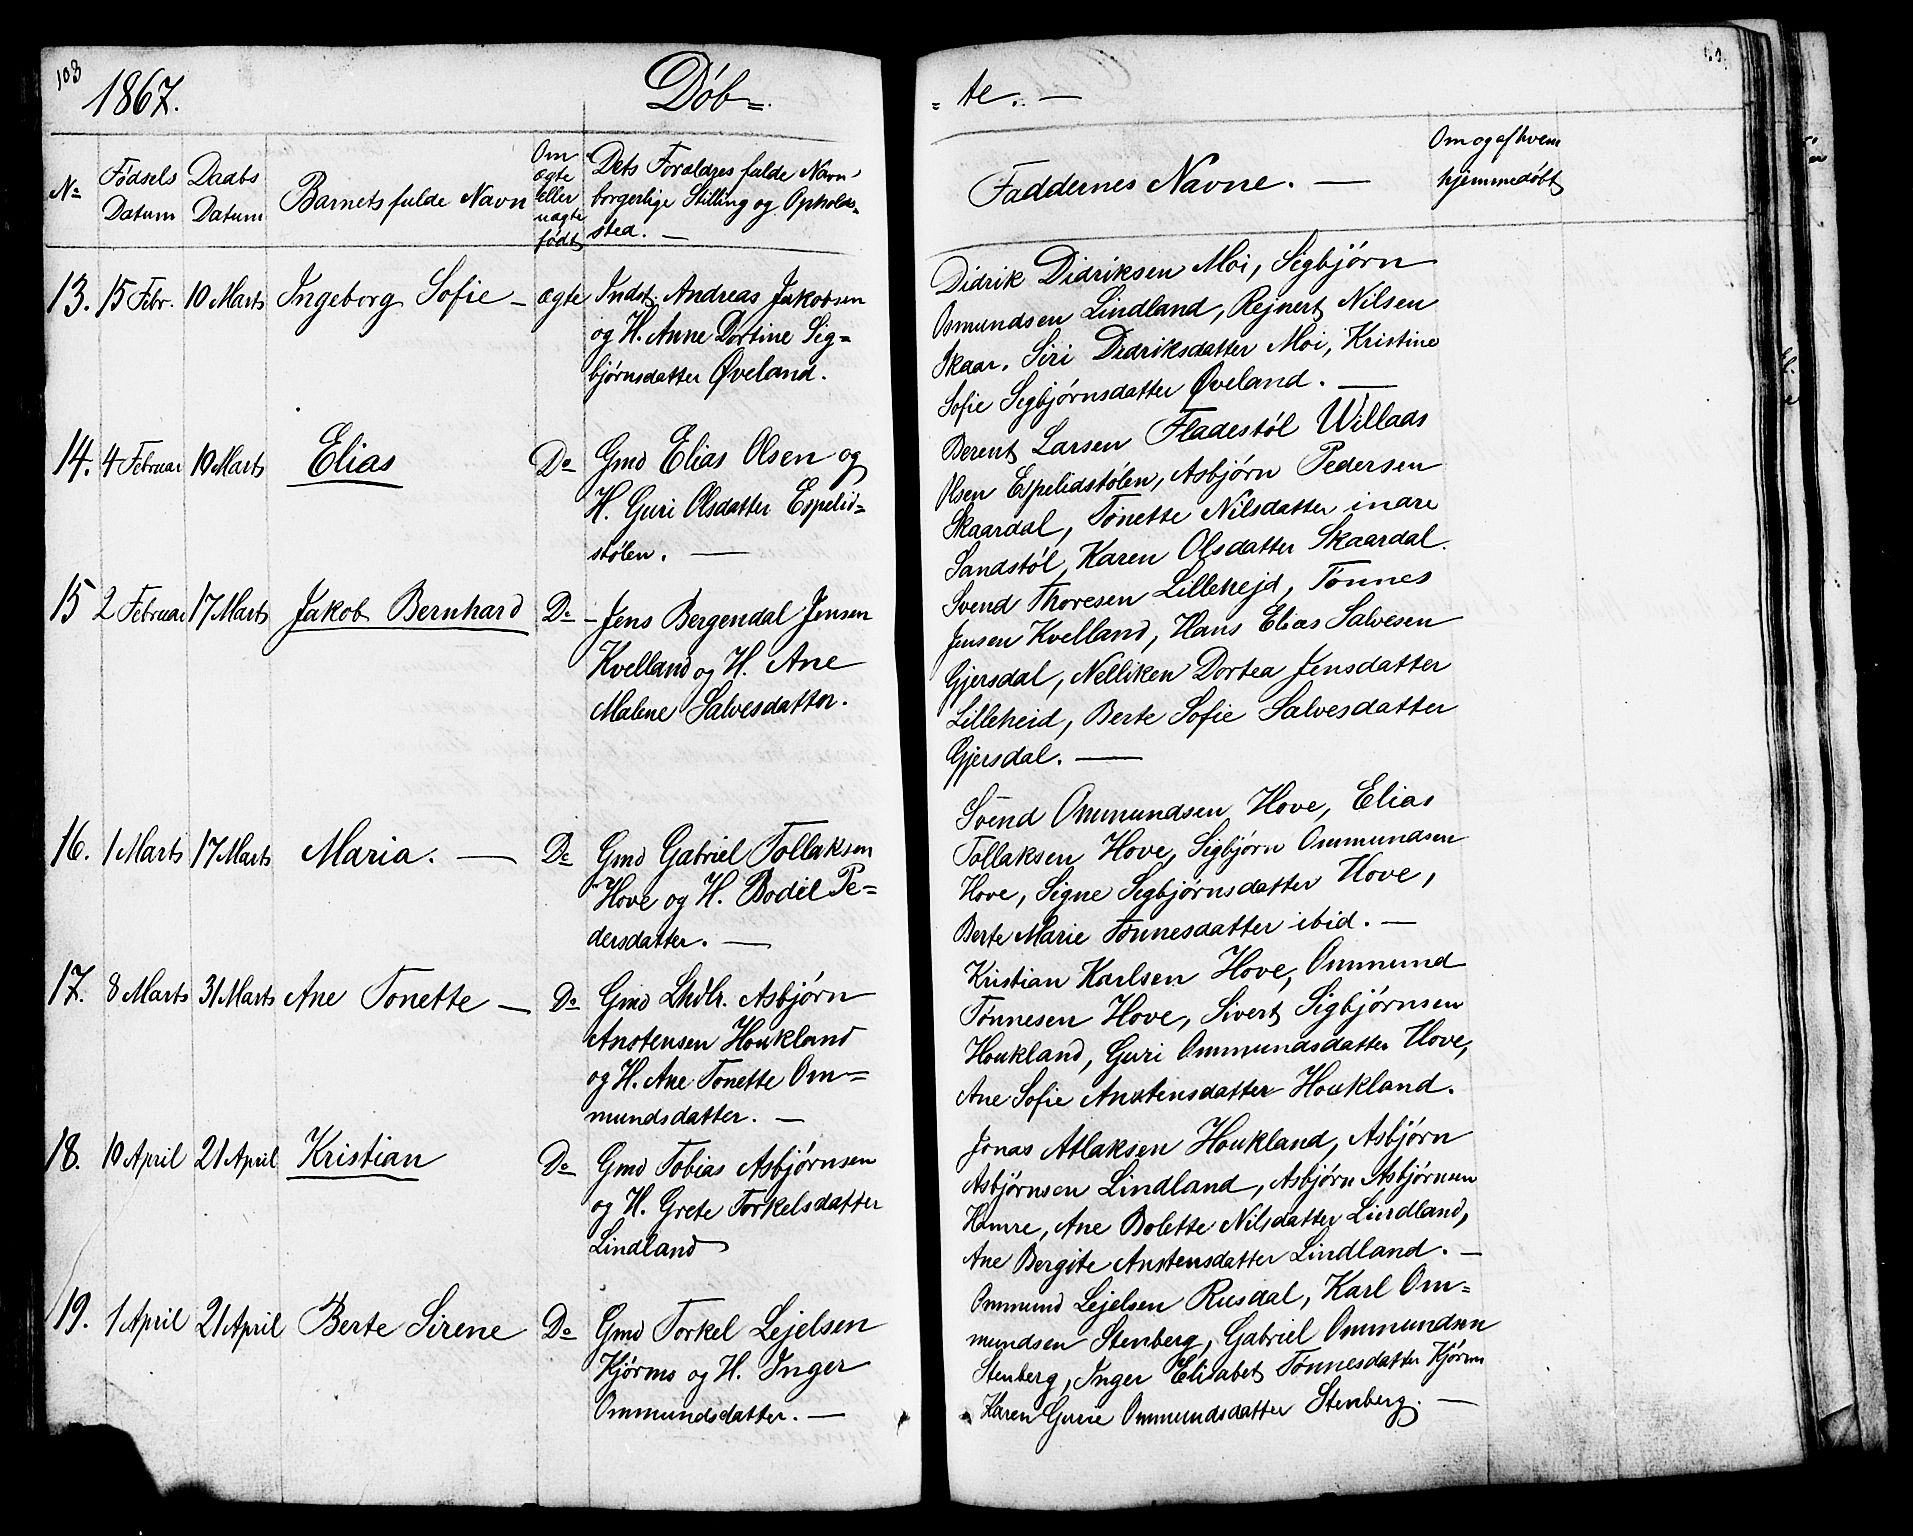 103
1867.
Döb=
No
Fødsels Datum
Daabs Datum
Barnets fulde Navn
Om ægte eller uægte født
Dets Forældres fulde Navn, borgerlige Stilling og Opholds=
sted. —
13. 15 Febr. 10 Marts Ingeborg Sofie — ægte Indst. Andreas Jakobsen
og H. Anne Dortine Sig=
bjørnsdatter Øveland.
14. 4 Februar 10 Marts Elias Do Gmd Elias Olsen og
H. Guri Olsdatter Espelid=
stølen. —
15 2 Februar 17 Marts Jakob Bernhard Do – Jens Bergendal Jensen
Kvelland og H. Ane
Malene Salvesdatter.
16. 1 Marts 17 Marts Maria. — Do Gmd Gabriel Tollaksen
Hove og H. Bodil Pe=
dersdatter. —
17. 8 Marts 31 Marts Ane Tonette — Do Gmd Lhdlr. Asbjørn
Anstensen Houkland
og H. Ane Tonette Om=
mundsdatter. —
18. 10 April 21 April Kristian Do Gmd Tobias Asbjørnsen
og H. Grete Torkelsdatter
Lindland
19. 1 April 21 April Berte Sirene Do Gmd Torkel Lejelsen
Kjørmo og H. Inger
Ommundsdatter. —
= te. —
Faddernes Navne. —
Om og af hvem
hjemmedøbt
Didrik Didriksen Moi, Sigbjørn
Osmundsen Lindland, Rejnert Nilsen
Skaar, Siri Didriksdatter Moi, Kristine
Sofie Sigbjørnsdatter Øveland. —
Berent Larsen Fladestøl Willads
Olsen Espelidstølen, Asbjørn Pedersen
Skaardal, Tønette Nilsdatter indre
Sandstøl, Karen Olsdatter Skaardal.
Svend Thoresen Lillehejd, Tønnes
Jensen Kvelland, Hans Elias Salvesen
Gjersdal, Nelliken Dortea Jensdatter
Lilleheid, Berte Sofie Salvesdatter
Gjersdal. —
Svend Ommundsen Hove, Elias
Tollaksen Hove, Sigbjørn Ommundsen
Hove, Signe Sigbjørnsdatter Hove,
Berte Marie Tønnesdatter ibid. —
Kristian Karlsen Hove, Ommund
Tønnesen Hove, Sivert Sigbjørnsen
Houkland, Guri Ommundsdatter Hove,
Ane Sofie Anstensdatter Houkland.
Jonas Atlaksen Houkland, Asbjørn
Asbjørnsen Lindland, Asbjørn Asbjørnsen
Hamre, Ane Bolette Nilsdatter Lindland,
Ane Bergite Anstensdatter Lindland. —
Ommund Lejelsen Rusdal, Karl Om=
mundsen Stenberg, Gabriel Ommundsen
Stenberg, Inger Elisabet Tønnesdatter Kjørmo
Karen Gurie Ommundsdatter Stenberg. —